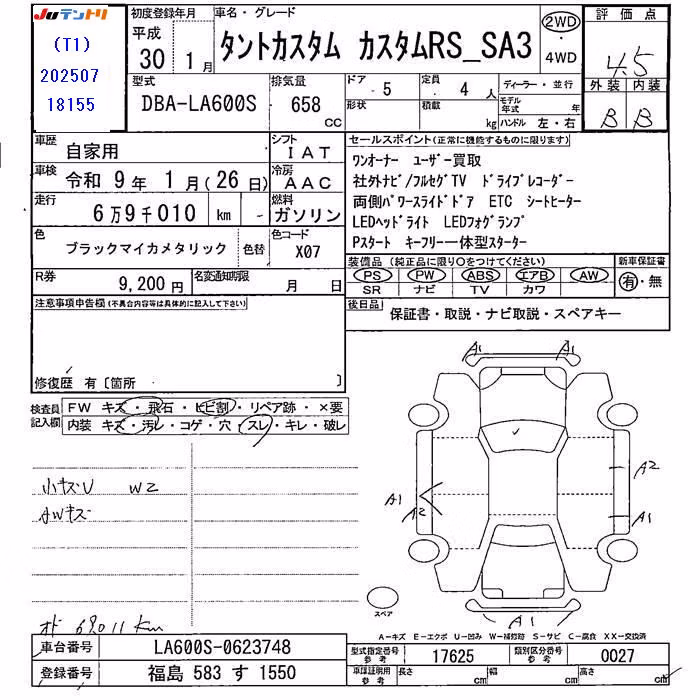 Juテントリ
(T1)
202507
18155
初度登録年月
平成
30 1月
車名・グレード
タントカスタム カスタムRS_SA3
2WD
・
4WD
評価点
4.5
外装 内装
B B
型式
DBA-LA600S
排気量
658
CC
ドア
5
定員
4人
形状
積載
kg
ディーラー・並行
モデル年式 年
ハンドル 左・右
車歴
自家用
シフト
IAT
車検
令和 9年 1月(26日)
冷房
AAC
走行
6万9千010 km
燃料
ガソリン
色
ブラックマイカメタリック
色替
色コード
X07
R券
9,200円
名変通知期限
月 日
セールスポイント(正常に機能するものに限ります)
ワンオーナー ユーザー買取
社外ナビ/フルセグTV ドライブレコーダー
両側パワースライドドア ETC シートヒーター
LEDヘッドライト LEDフォグランプ
Pスタート キーフリー一体型スターター
装備品(純正品に限り〇をつけてください)
新車保証書
PS PW ABS エアB AW
有・無
SR ナビ TV カワ
後日品
保証書・取説・ナビ取説・スペアキー
注意事項申告欄(不具合内容等は具体的に記入して下さい)
修復歴 有〔箇所 〕
検査員記入欄
FW キズ・飛石・ヒビ割・リペア跡・×要
内装 キズ・汚レ・コゲ・穴・スレ・キレ・破レ
小キズU W2
AWキズ
オド 69011km
A1 A1
A2
A1
A2
A1
A1 A1
スペア
A-キズ E-エクボ U-凹み W-補修跡 S-サビ C-腐食 XX-交換済
車台番号
LA600S-0623748
登録番号
福島 583 す 1550
型式指定番号
参考
17625
類別区分番号
参考
0027
車庫証明用
参考
長さ cm
幅 cm
高さ cm